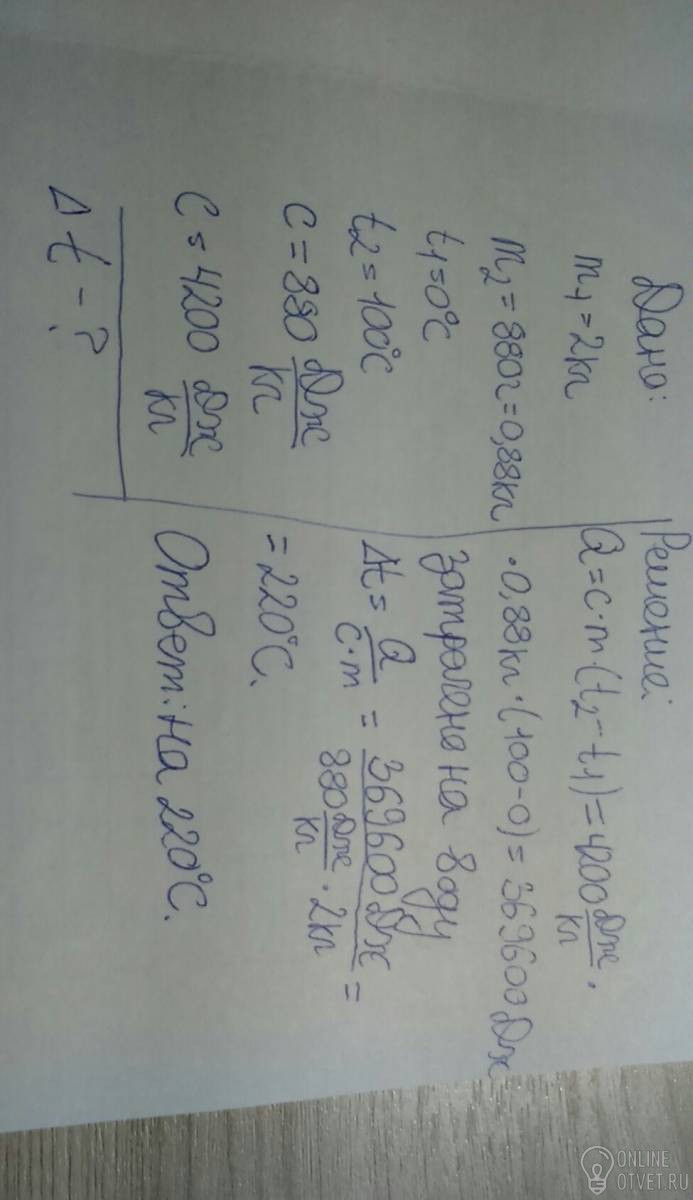 Дано:
m1 = 2кг
m2 = 880г = 0,88кг
t1 = 0°C
t2 = 100°C
C = 880 Дж/кг
C = 4200 Дж/кг
Δt - ?
Решение:
Q = c·m·(t2-t1) = 4200 Дж/кг ·
· 0,88кг · (100-0) = 369600 Дж
затрачена на воду
Δt = Q/c·m = 369600 Дж / 880 Дж/кг · 2кг =
= 220°C.
Ответ: на 220°C.
ONLINE
OTVET.RU